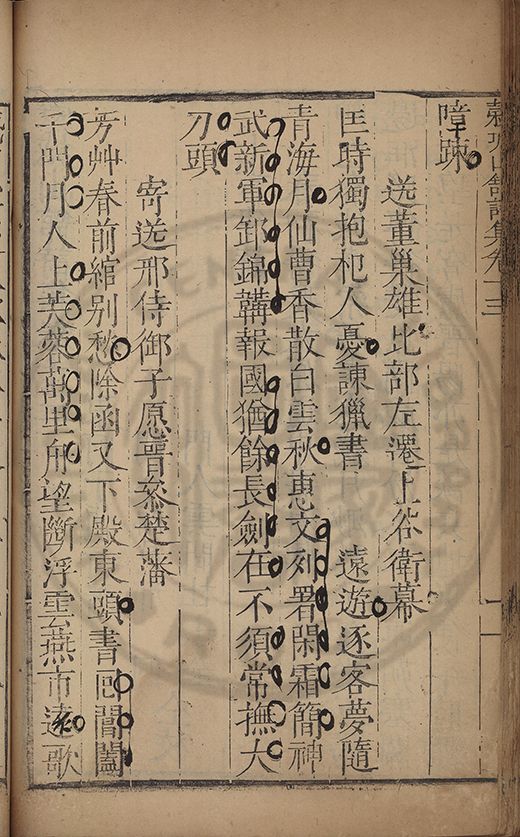 穀城山館詩集卷十三
嶂踈
送董巢雄比部左遷上谷衛幕
匡時獨抱杞人憂諫獵書　　遠遊逐客夢隨
青海月仙曹香散白雲秋惠文列署閑霜簡神
武新軍卸錦鞲報國猶餘長劍在不須常撫大
刀頭
寄送邢侍御子愿晋叅楚藩
芳艸春前綰别愁除函又下殿東頭書囘閶闔
千門月人上芙蓉萬里舟望斷浮雲燕市遠歌